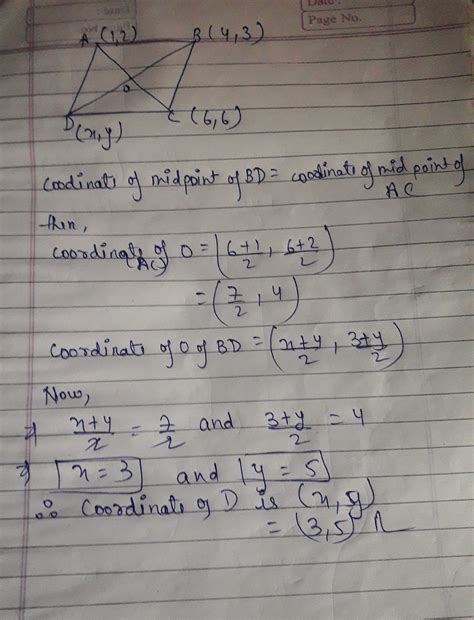 Date
Page No.
A (1,2) B (4,3)
O
D (x,y) C (6,6)
Coodinate of midpoint of BD = coodinate of mid point of
AC
then,
coordinate of O = (6+1/2 , 6+2/2)
(AC)
= (7/2 , 4)
coordinate of O of BD = (x+4/2 , 3+y/2)
Now,
⇒ x+4/2 = 7/2 and 3+y/2 = 4
⇒ x = 3 and y = 5
∴ Coordinate of D is (x,y)
= (3,5)